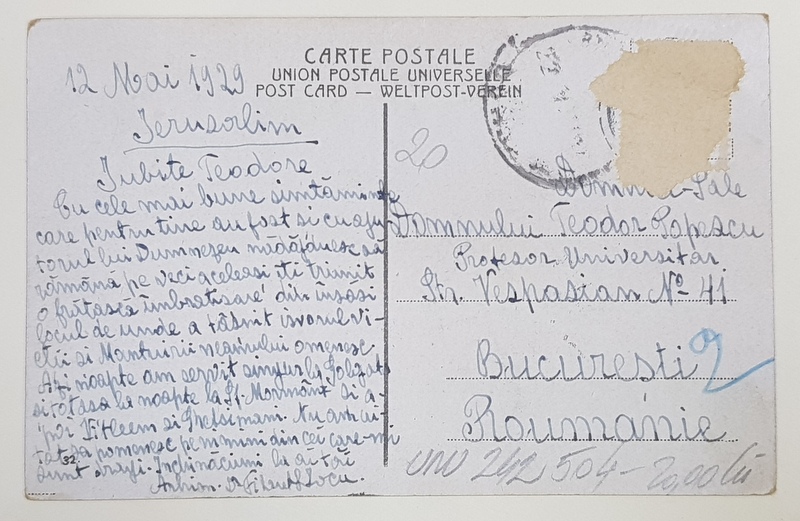 CARTE POSTALE
UNION POSTALE UNIVERSELLE
POST CARD — WELTPOST-VEREIN
12 Mai 1929
Ierusalim
Iubite Teodore
Cu cele mai bune simtăminte
care pentru tine au fost si cu aju-
torul lui Dumnezeu nădăjduesc să
rămână pe veci aceleasi iti trimit
o frătască îmbratisare din însăsi
locul de unde a tâsnit isvorul vi-
etii si Mantuirii neamului omenesc
noapte am servit singur la Golgota
si tot asa la noapte la Sf. Mormânt si a-
poi Vitleem si Ghetsimani. Nu am ui-
tat sa pomenesc pe nimini din cei care-mi
sunt dragi. Inchinăciuni la ai tăi
Arhim.
32
20
Domniei-Sale
Domnului Teodor Popescu
Profesor Universitar
Str. Vespasian No 41
Bucuresti 2
Roumanie
UNU 242 504 - 20,00 lei